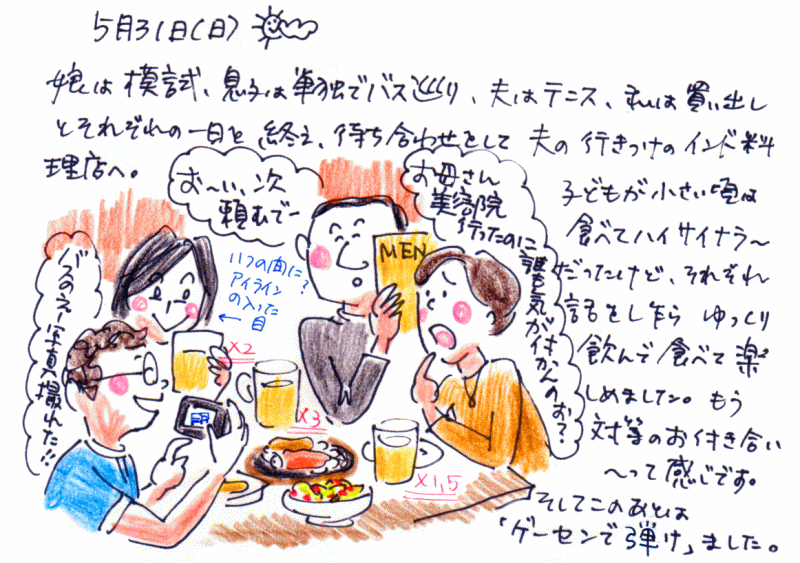 5月31日(日)
娘は模試、息子は単独でバス巡り、夫はテニス、私は買い出し
とそれぞれの一日を終え、待ち合わせをして夫の行きつけのインド料
理店へ。
お〜い、次
頼むでー
お母さん
美容院
行ったのに
誰も気が付かんのお?
MEN
いつの間に?
アイライン
の入った
目
バスのええ写真撮れた!!
子どもが小さい頃は
食べてハイサイナラ〜
だったけど、それぞれ
話をし乍ら ゆっくり
飲んで食べて楽
しめました。もう
対等のお付き合い
〜って感じです。
そしてこのあとは
「ゲーセンで弾け」ました。
×2
×3
×1,5